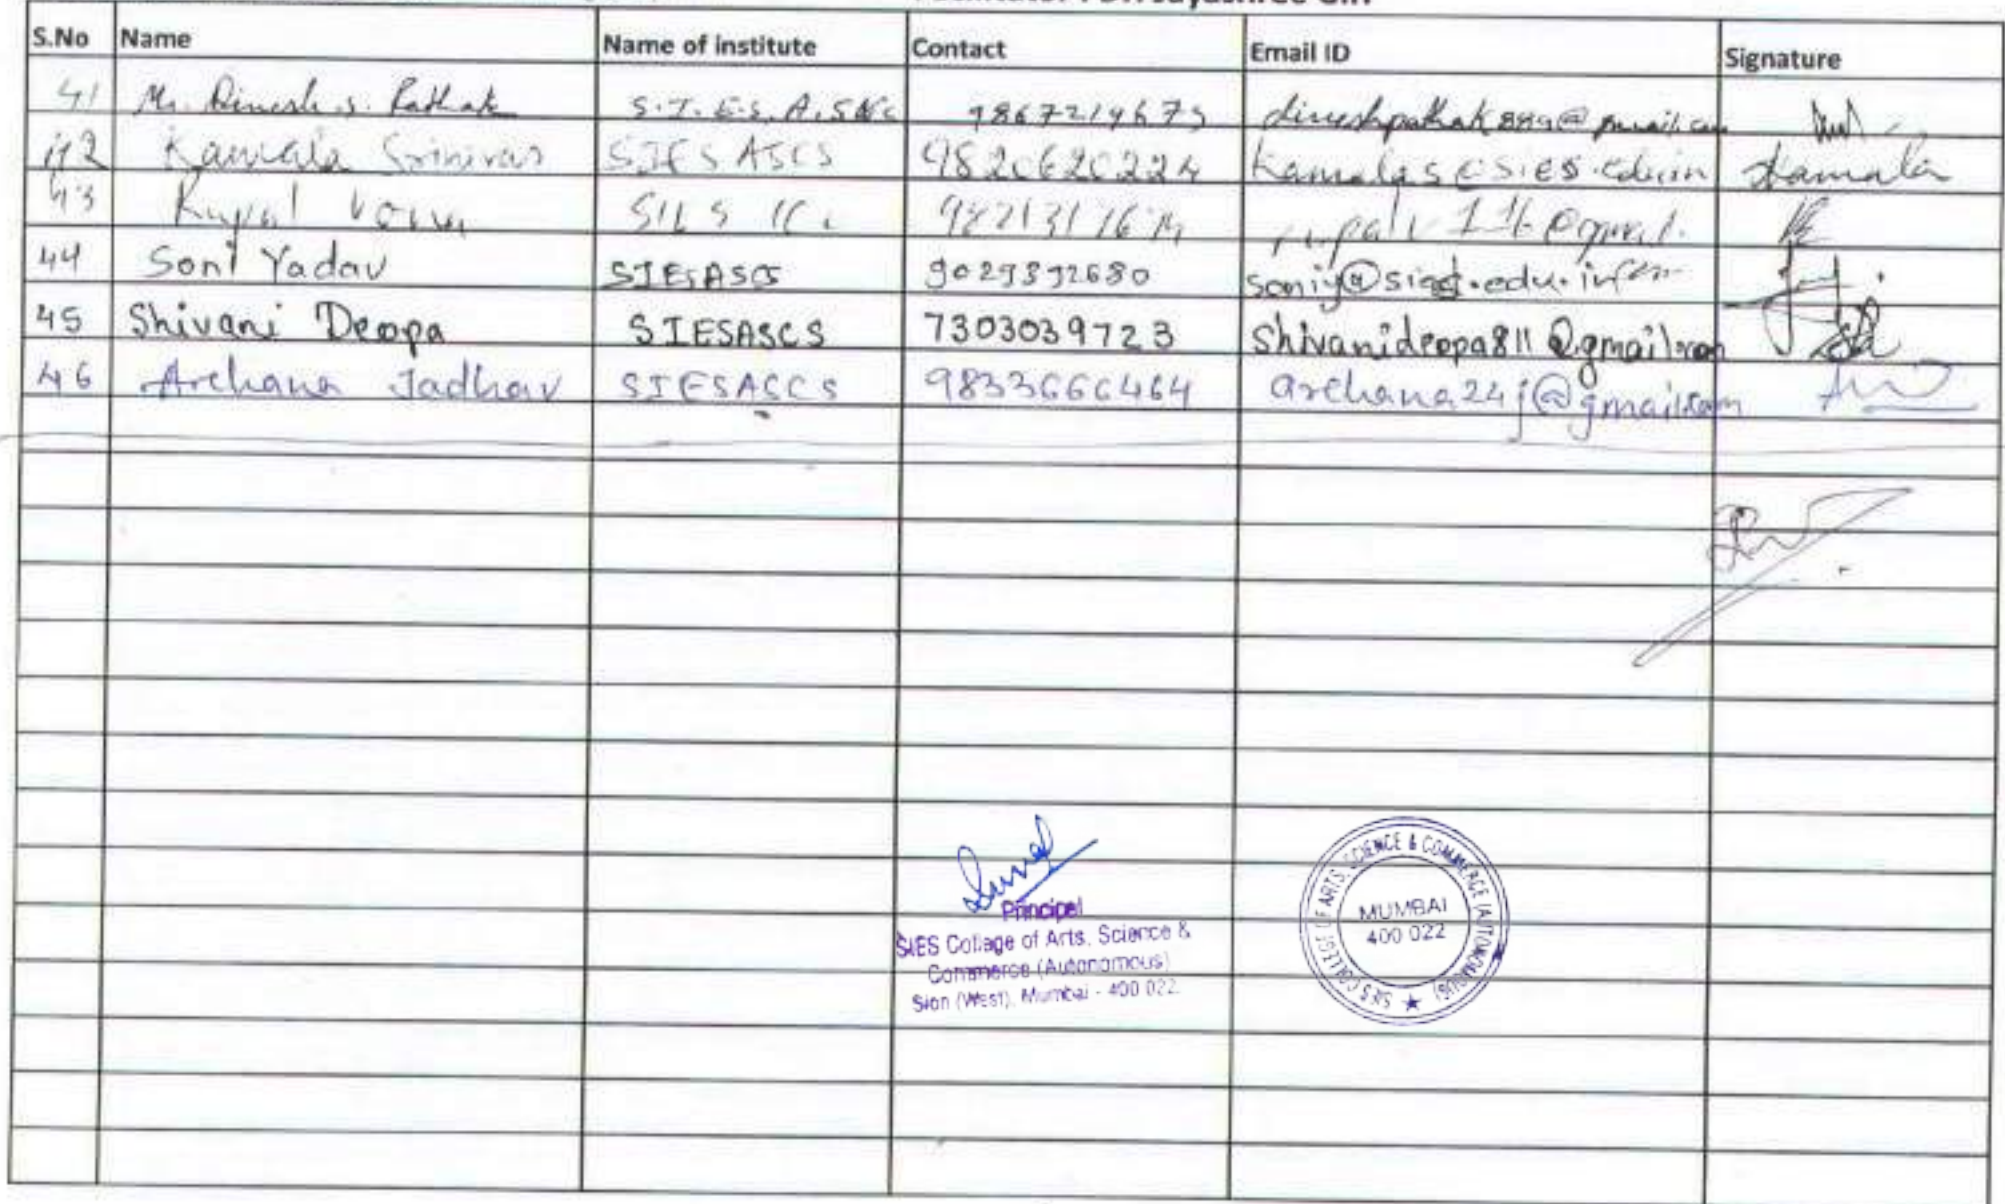 S.No Name Name of institute Contact Email ID Signature
41 Mr. Dinesh S. Pathak S.I.E.S. A.S&C dineshpathak889@gmail.com
42 Kamala Srinivas SIES ASCS 9820620224 kamalas@sies.edu.in Kamala
43 Rupal
44 Soni Yadav SIESASCS
45 Shivani Deopa SIESASCS 7303039723 Shivanideopa811@gmail.com
46 Archana Jadhav SIESASCS 9833666464 archana24j@gmail.com
Principal
SIES College of Arts, Science &
Commerce (Autonomous)
Sion (West), Mumbai - 400 022.
SIES COLLEGE OF ARTS, SCIENCE & COMMERCE (AUTONOMOUS)
MUMBAI
400 022